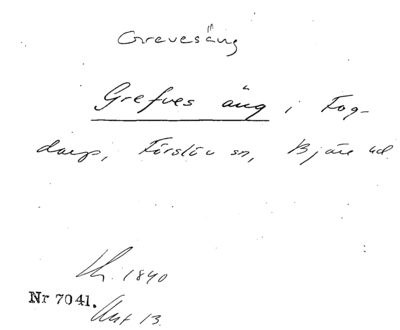 Grevesäng
Grefves äng i Fog-
darp, Förslöv sn, Bjäre hd.
1840
Nr 7041.
Akt 13.